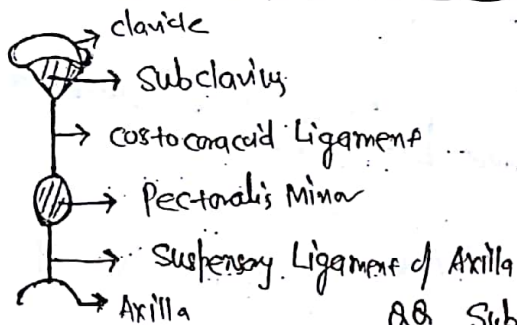 clavicle
Subclavius
costocoracoid Ligament
Pectoralis Minor
Suspensory Ligament of Axilla
Axilla
QQ Sub